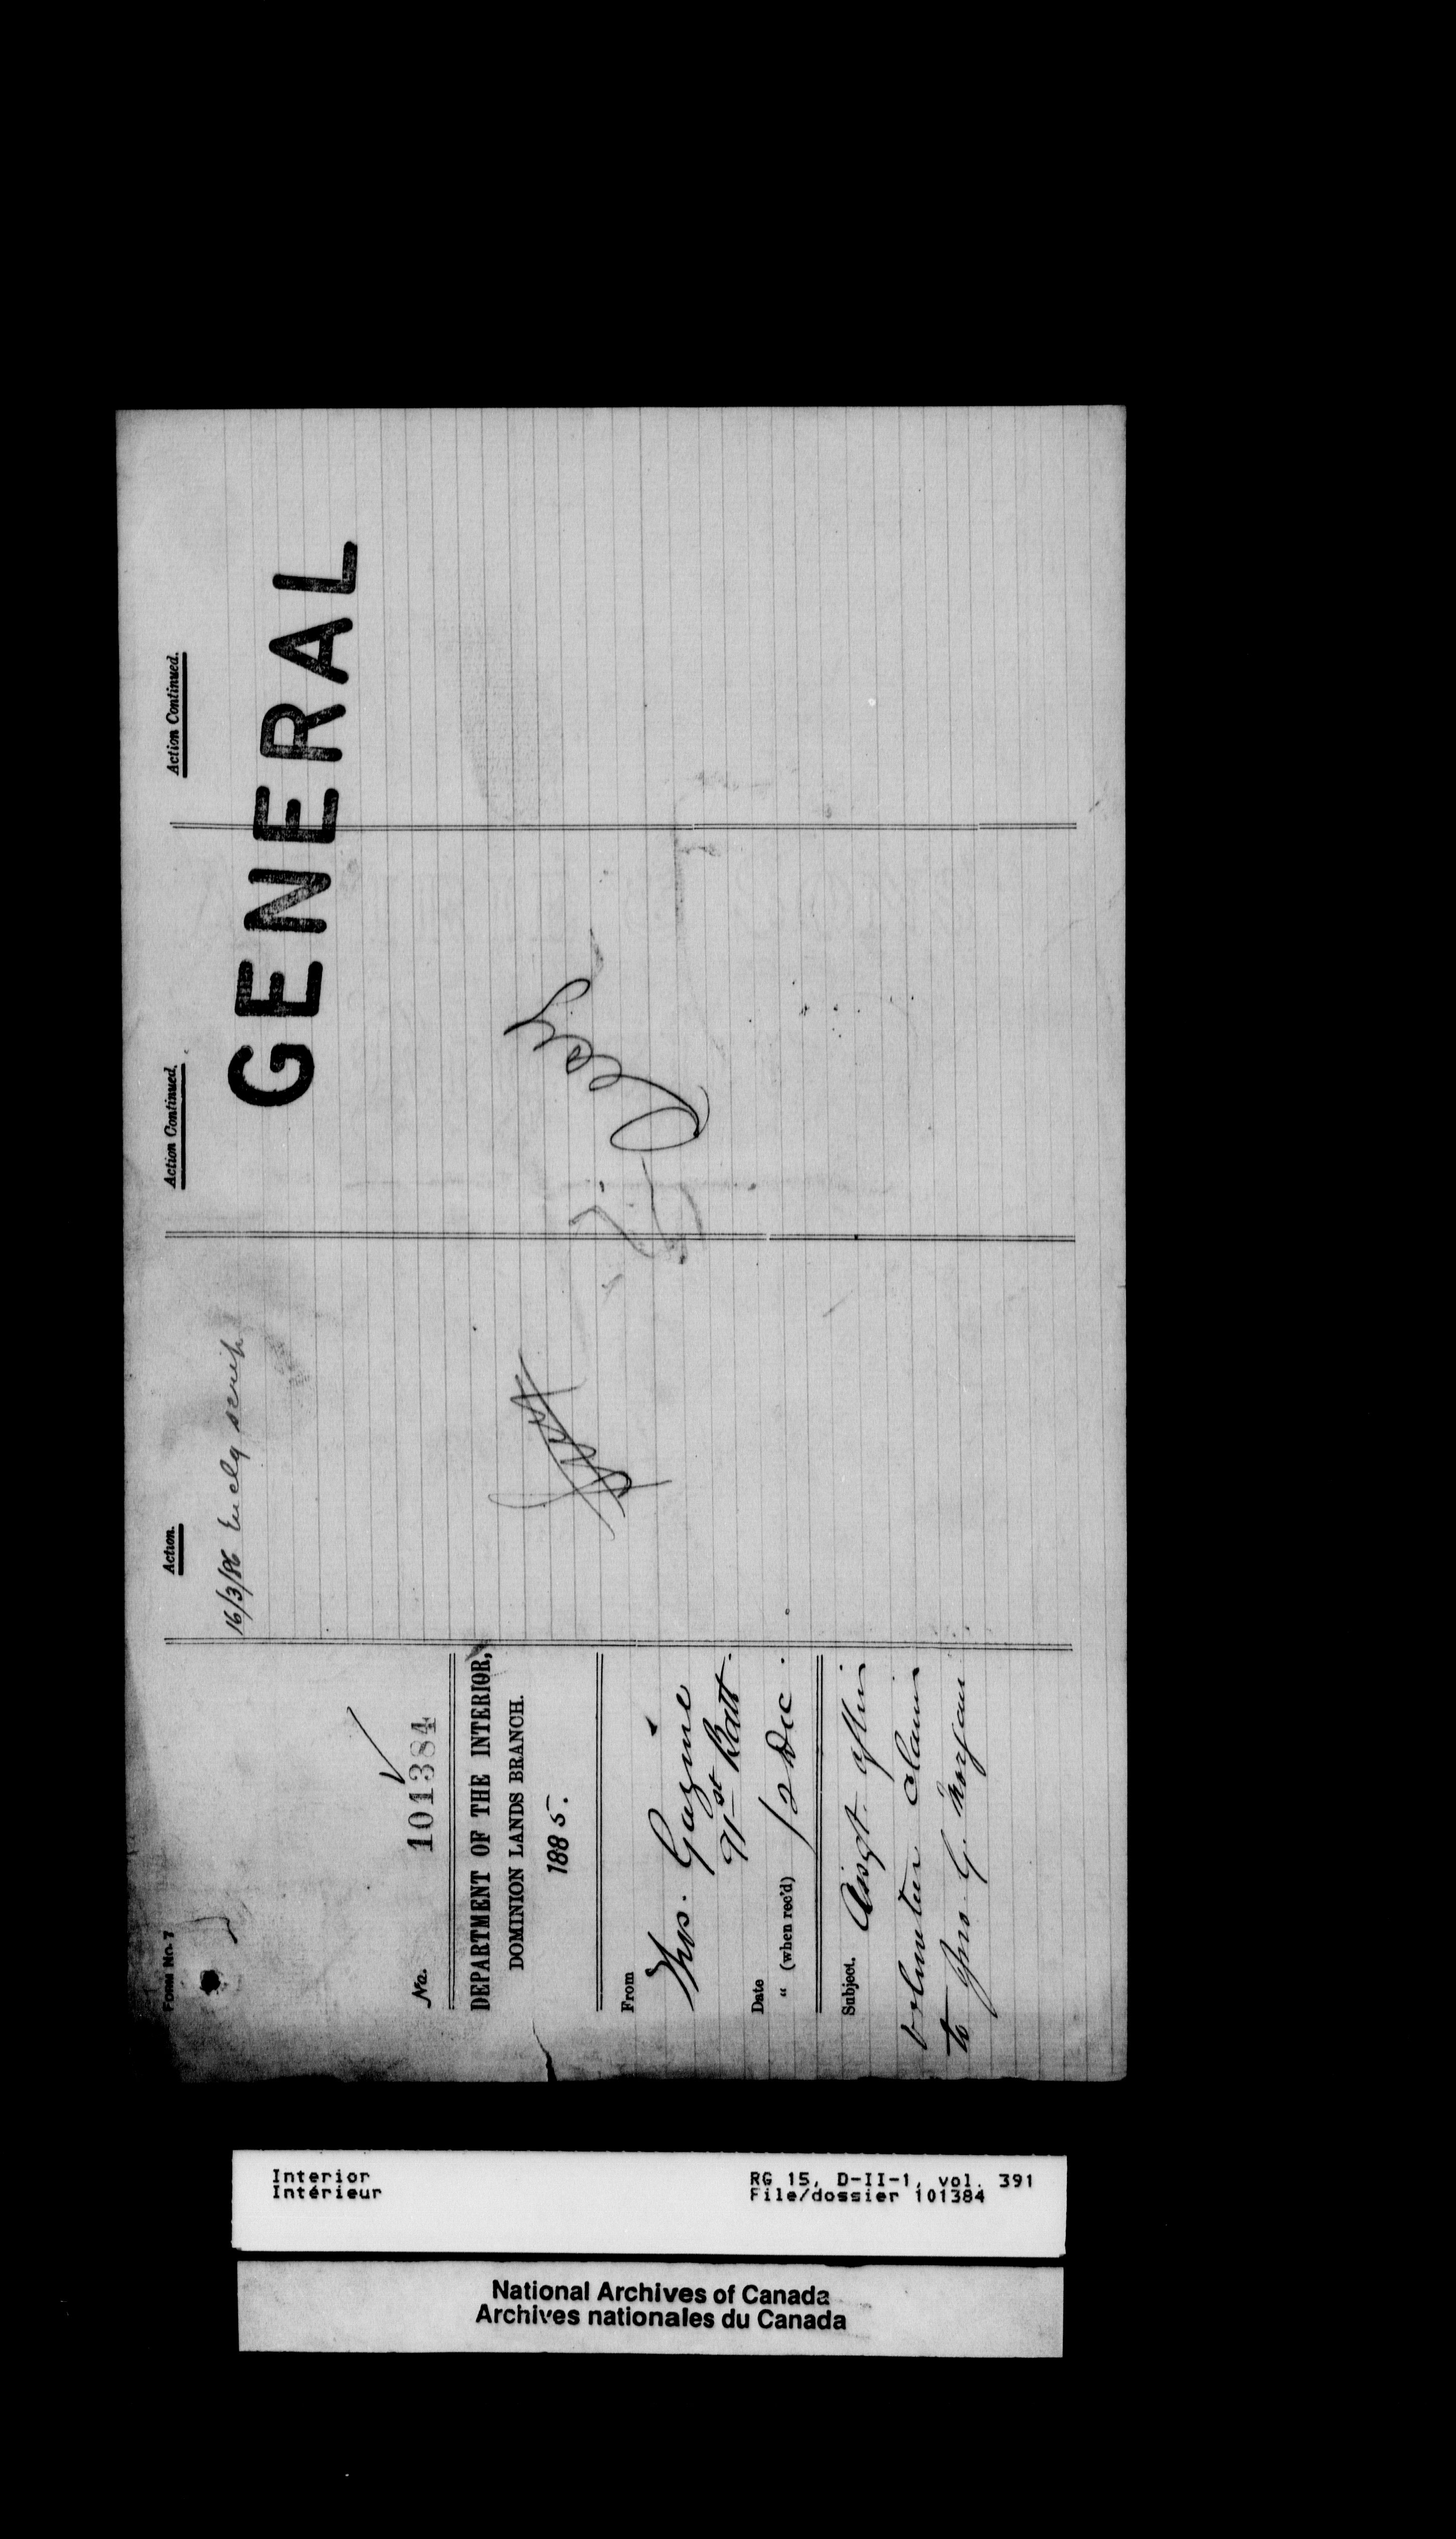 Form No. 7
No. 101384
DEPARTMENT OF THE INTERIOR,
DOMINION LANDS BRANCH.
1885.
From
Thos. Gagné
91st Batt.
Date
" (when rec'd) 12 Dec.
Subject. Assgt. of his
volunteer claim
to Jno. G. Morgan
Action.
16/3/86 Encly scrip
Action Continued.
Action Continued.
GENERAL
Interior
Intérieur
RG 15, D-II-1, vol. 391
File/dossier 101384
National Archives of Canada
Archives nationales du Canada